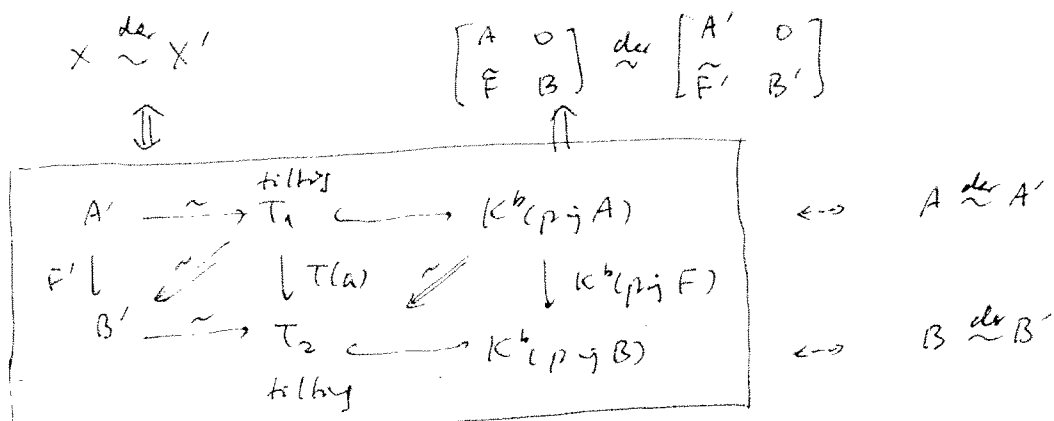 X ~ᵈᵉʳ X' [A 0; F̃ B] ~ᵈᵉʳ [A' 0; F̃' B']
⇕ ⇑
tilting
A' ~→ T₁ ↪ Kᵇ(proj A) ↔ A ~ᵈᵉʳ A'
F' ↓ ~ ⇙ ↓ T(a) ~ ⇙ ↓ Kᵇ(proj F)
B' ~→ T₂ ↪ Kᵇ(proj B) ↔ B ~ᵈᵉʳ B'
tilting